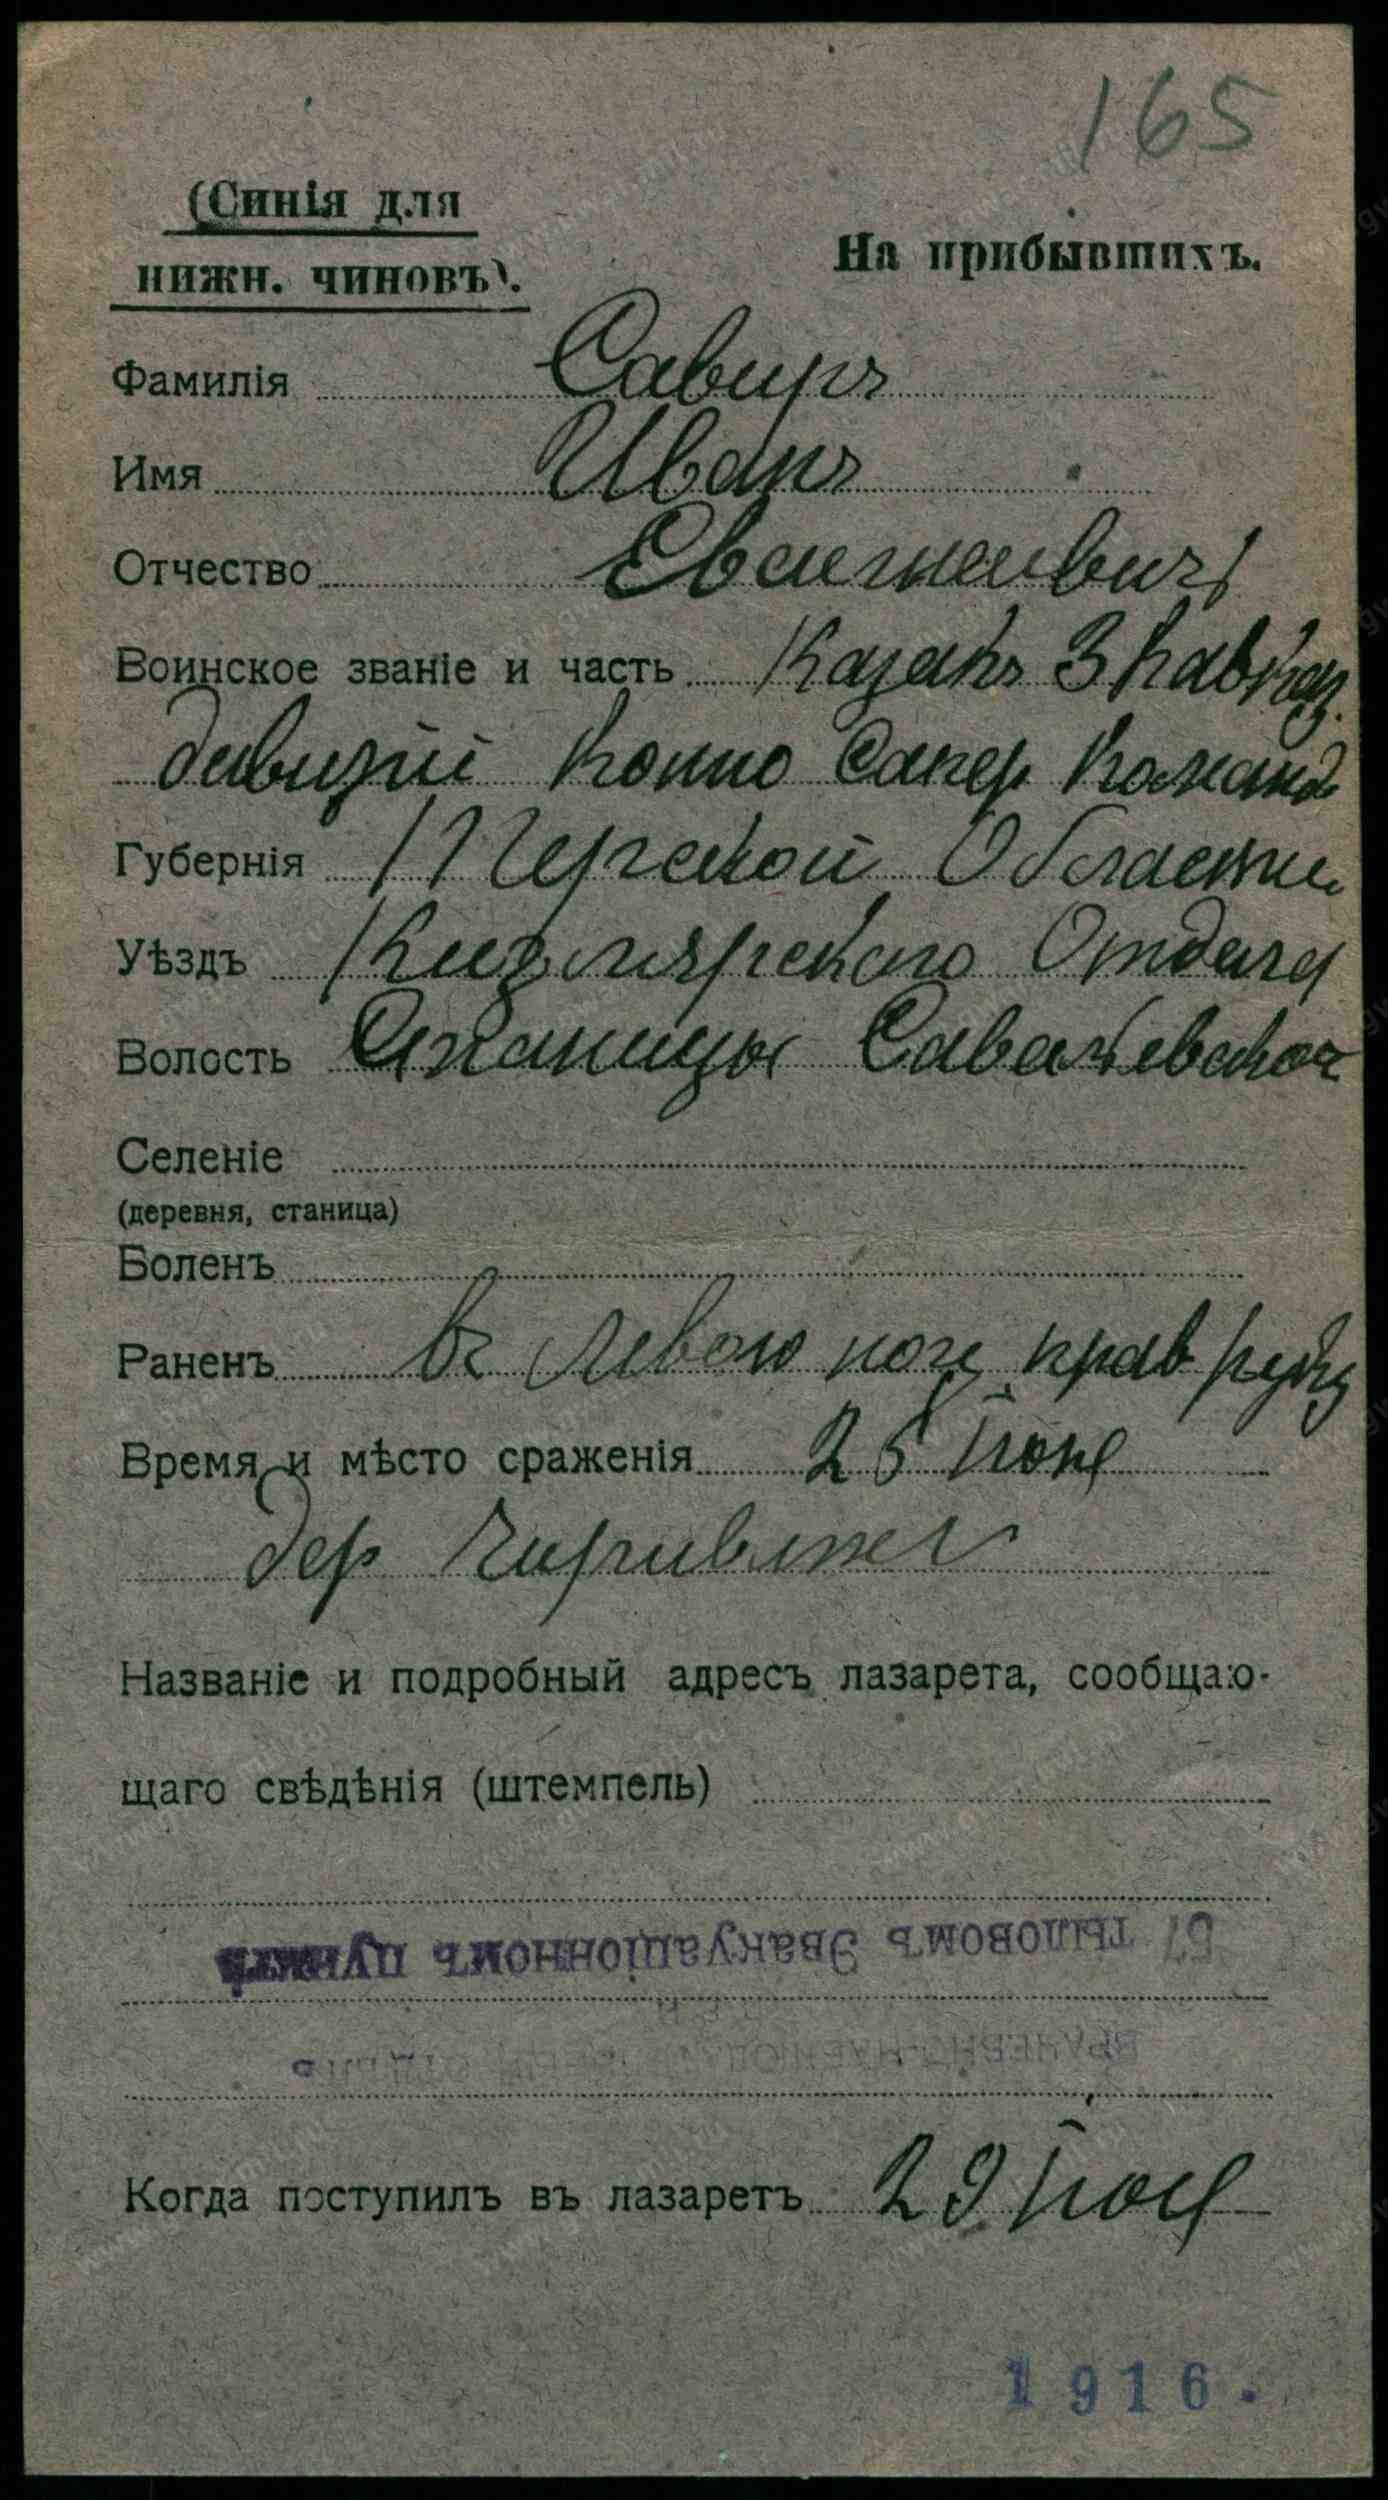 165
(Синія для
нижн. чиновъ).
На прибывшихъ.
Фамилія Савиръ
Имя Иванъ
Отчество Евстигнеевичъ
Воинское званіе и часть Казакъ 3 Кавказ.
дивизіи Конно Сапер Команд
Губернія Терской Области
Уѣздъ Кизлярского Отдела
Волость Станицы Савельевской
Селеніе
(деревня, станица)
Боленъ
Раненъ въ левою ногу прав руку
Время и мѣсто сраженія 25 Іюня
дер
Названіе и подробный адресъ лазарета, сообщаю-
щаго свѣдѣнія (штемпель)
57 тыловомъ Эвакуаціонномъ пунктѣ
Когда поступилъ въ лазаретъ 29 Іюня
1916.